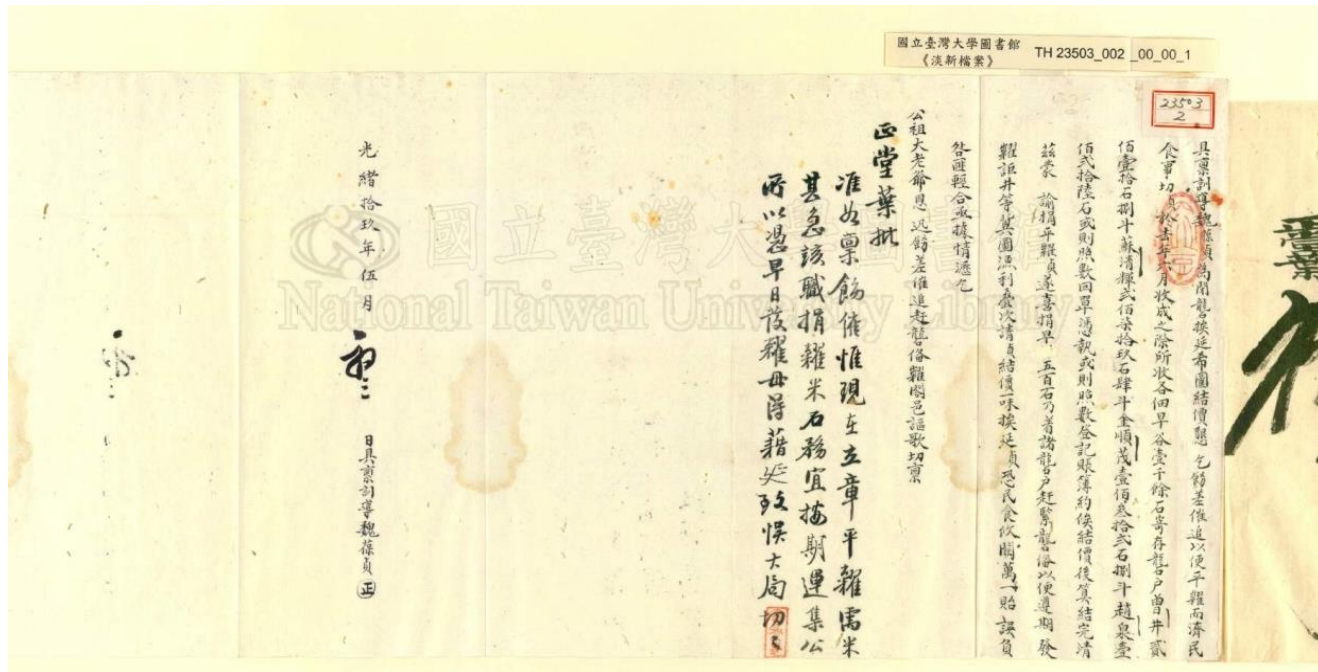 國立臺灣大學圖書館
《淡新檔案》
TH 23503_002 _00_00_1
23503
2
具稟訓導魏葆貞為鬧礱挨延希圖結價懇乞飭差催追以便平糶而濟民
食事切貞於去年六月收成之際所收各佃早谷壹千餘石寄存礱戶曾井貳
佰壹拾石捌斗蘇清輝貳佰柒拾玖石肆斗金順茂壹佰叁拾貳石捌斗趙泉壹
佰貳拾陸石或則照數回單憑執或則照數登記賬簿約俟結價後算結完清
茲蒙 諭捐平糶貞遂喜捐早 五百石乃着諸礱戶赶緊礱俻以便遵期發
糶詎井等冀圖漁利叠次請貞結價一味挨延貞恐民食攸關萬一貽誤負
咎匪輕合亟據情瀝乞
公祖大老爺恩 迅飭差催追赶礱俻糶闔邑謳歌切稟
正堂葉批
准如稟飭催惟現在立章平糶需米
甚急該職捐糶米石務宜按期運集公
所以憑早日發糶毋得藉延致悞大局切切
光緒拾玖年伍月
日具稟訓導魏葆貞
正
國立臺灣大學圖書館
National Taiwan University Library